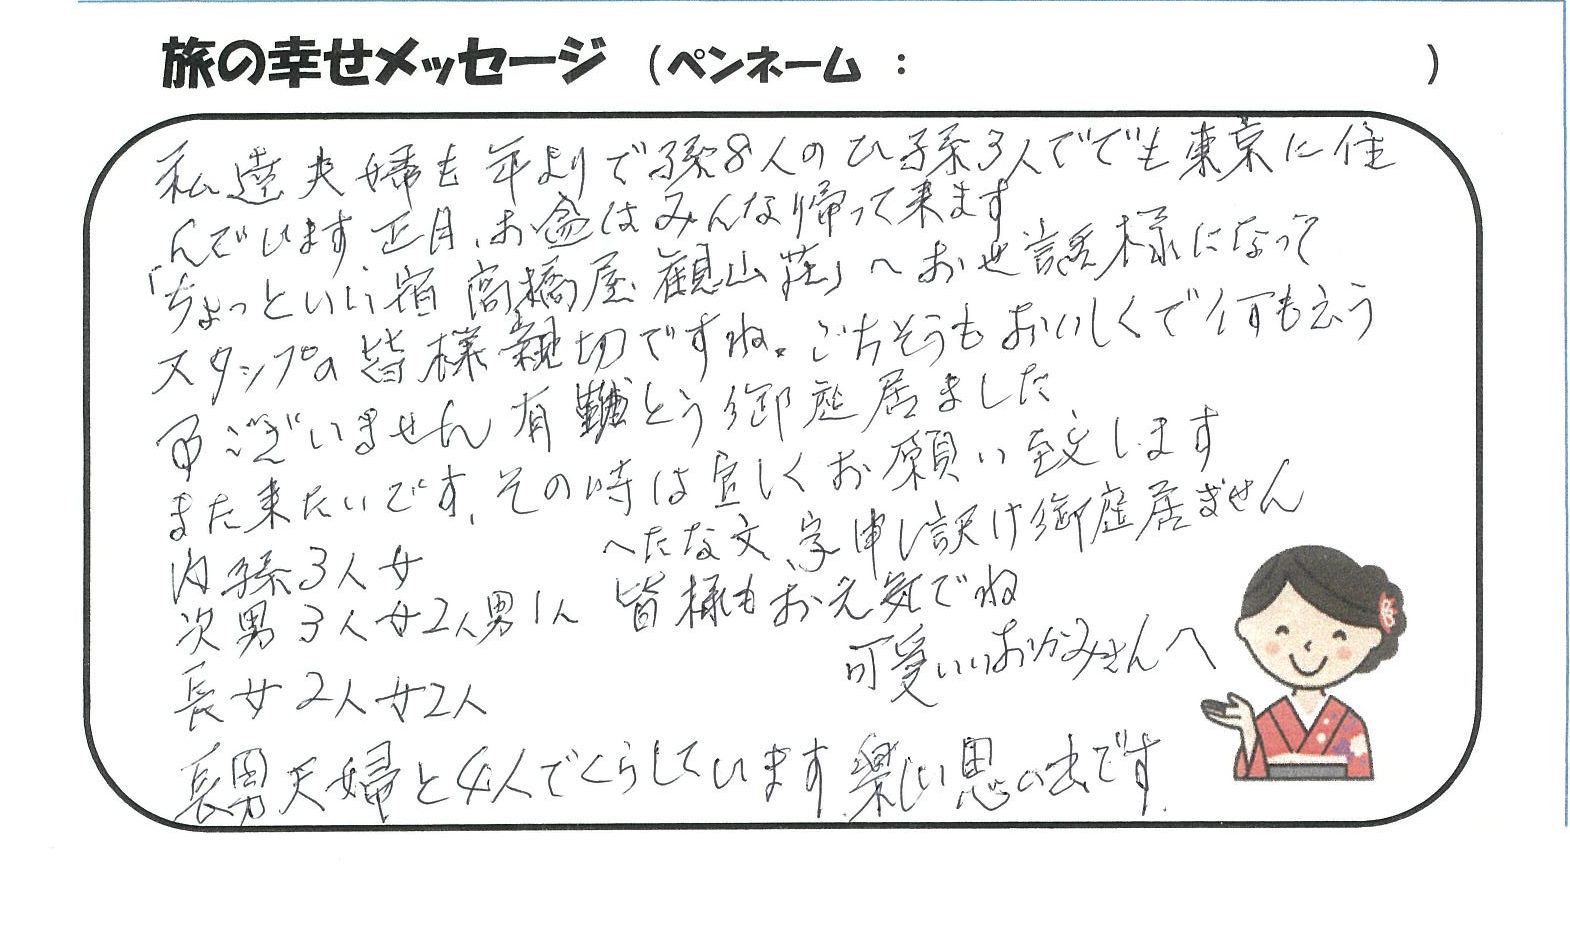 旅の幸せメッセージ （ペンネーム ： ）
私達夫婦も年よりで孫8人のひ孫3人ででも東京に住
んでいます正月、お盆はみんな帰って来ます
「ちょっといい宿 高橋屋 観山荘」へお世話様になって
スタッフの皆様親切ですね。ごちそうもおいしくで何も云う
事ございません有難とう御座居ました
また来たいです、その時は宜しくお願い致します
へたな文、字申し訳け御座居ません
内孫3人女
皆様もお元気でね
次男3人女2人男1人
可愛いいおかみさんへ
長女2人女2人
長男夫婦と4人でくらしています、楽しい思い出です.